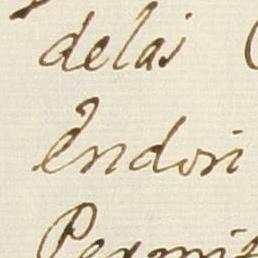 delai
Endori
Permit